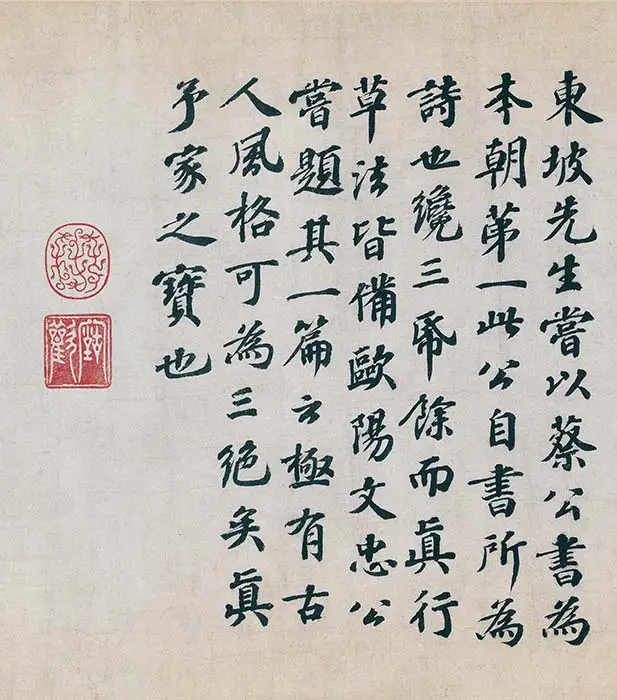 東坡先生嘗以蔡公書為
本朝第一此公自書所為
詩也纔三帋餘而真行
草法皆備歐陽文忠公
嘗題其一篇云極有古
人風格可為三絕矣真
予家之寶也